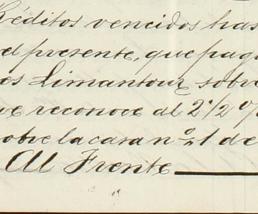 Réditos vencidos has
el presente, que pag
os Limantour sobre
ue reconoce al 2 1/2 %
sobre la casa nº 1 de
Al Frente